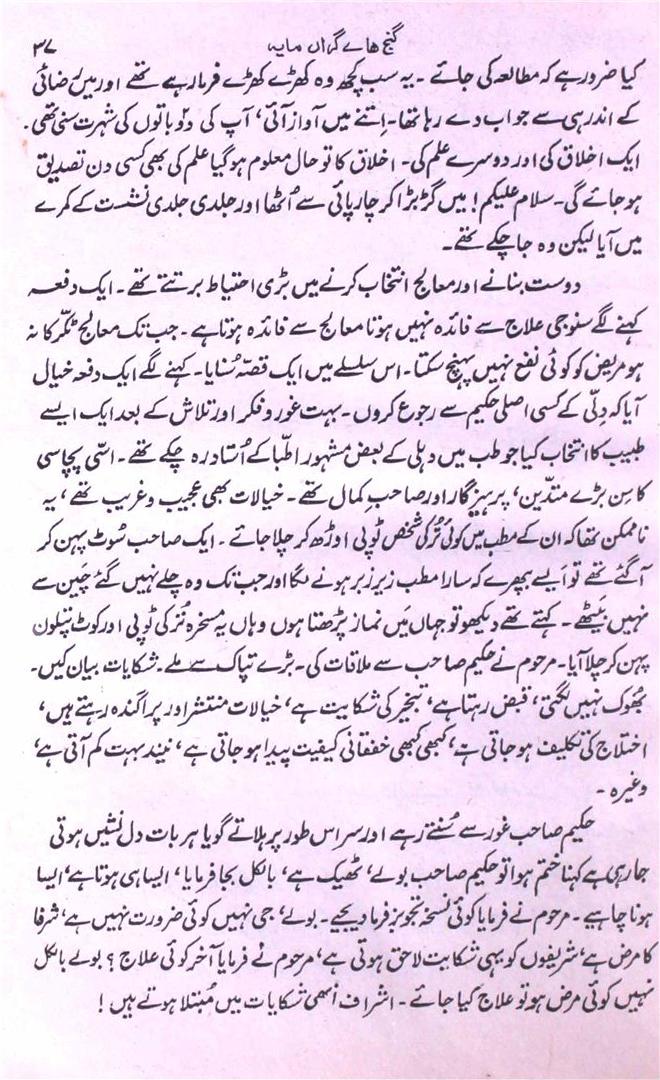 گنج ھاے گراں مایہ
۳۷
کیا ضرور ہے کہ مطالعہ کی جائے ۔ یہ سب کچھ وہ کھڑے کھڑے فرما رہے تھے اور میں رضائی
کے اندر ہی سے جواب دے رہا تھا۔ اتنے میں آواز آئی، آپ کی دو باتوں کی شہرت سنی تھی۔
ایک اخلاق کی اور دوسرے علم کی۔ اخلاق کا تو حال معلوم ہو گیا علم کی بھی کسی دن تصدیق
ہو جائے گی۔ سلام علیکم! میں گڑبڑا کر چارپائی سے اُٹھا اور جلدی جلدی نشست کے کمرے
میں آیا لیکن وہ جا چکے تھے۔
دوست بنانے اور معالج انتخاب کرنے میں بڑی احتیاط برتتے تھے ۔ ایک دفعہ
کہنے لگے سنو جی علاج سے فائدہ نہیں ہوتا معالج سے فائدہ ہوتا ہے۔ جب تک معالج ٹکّر کا نہ
ہو مریض کو کوئی نفع نہیں پہنچ سکتا۔ اس سلسلے میں ایک قصّہ سُنایا۔ کہنے لگے ایک دفعہ خیال
آیا کہ دلّی کے کسی اصلی حکیم سے رجوع کروں۔ بہت غور و فکر اور تلاش کے بعد ایک ایسے
طبیب کا انتخاب کیا جو طب میں دہلی کے بعض مشہور اطبّا کے اُستاد رہ چکے تھے۔ اسّی پچاسی
کا سِن بڑے متدّین، پرہیزگار اور صاحبِ کمال تھے۔ خیالات بھی عجیب و غریب تھے، یہ
ناممکن تھا کہ ان کے مطب میں کوئی شخص تُرکی ٹوپی اوڑھ کر چلا جائے ۔ ایک صاحب سُوٹ پہن کر
آ گئے تھے تو ایسے بپھرے کہ سارا مطب زیر زبر ہونے لگا اور جب تک وہ چلے نہیں گئے چین سے
نہیں بیٹھے۔ کہتے تھے دیکھو تو جہاں میں نماز پڑھتا ہوں وہاں یہ مسخرہ تُرکی ٹوپی اور کوٹ پتلون
پہن کر چلا آیا۔ مرحوم نے حکیم صاحب سے ملاقات کی۔ بڑے تپاک سے ملے۔ شکایات بیان کیں۔
بھُوک نہیں لگتی، قبض رہتا ہے، تبخیر کی شکایت ہے، خیالات منتشر اور پراگندہ رہتے ہیں،
اختلاج کی تکلیف ہو جاتی ہے، کبھی کبھی خفقانی کیفیت پیدا ہو جاتی ہے، نیند بہت کم آتی ہے،
وغیرہ ۔
حکیم صاحب غور سے سُنتے رہے اور سر اس طور پر ہلاتے گویا ہر بات دل نشیں ہوتی
جا رہی ہے کہنا ختم ہوا تو حکیم صاحب بولے، ٹھیک ہے، بالکل بجا فرمایا، ایسا ہی ہوتا ہے، ایسا
ہونا چاہیے ۔ مرحوم نے فرمایا کوئی نسخہ تجویز فرما دیجیے۔ بولے، جی نہیں کوئی ضرورت نہیں ہے، شرفا
کا مرض ہے، شریفوں کو یہی شکایت لاحق ہوتی ہے، مرحوم نے فرمایا آخر کوئی علاج ؟ بولے بالکل
نہیں کوئی مرض ہو تو علاج کیا جائے ۔ اشراف انھی شکایات میں مُبتلا ہوتے ہیں !